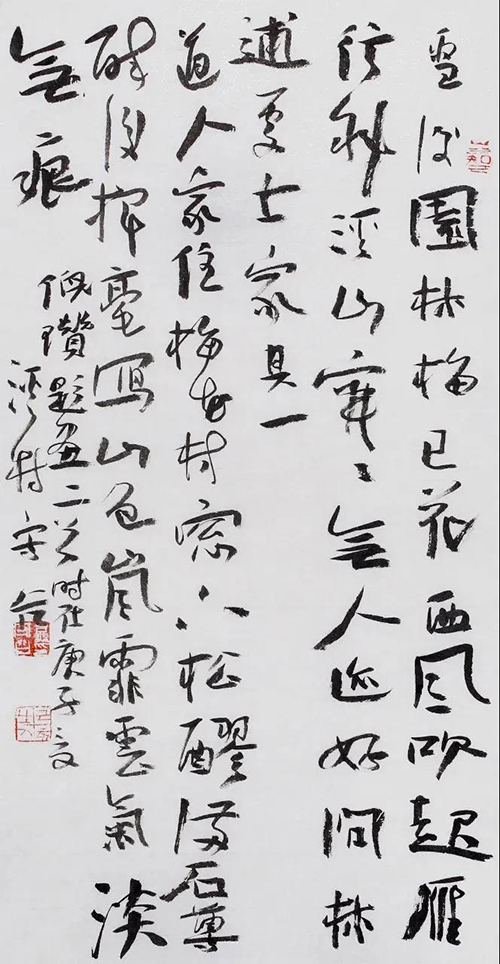 雪後園林梅已花西風吹起雁
行斜溪山寂々無人迹好問林
逋處士家其一
道人家住梅花村窗下松醪滿石尊
醉後揮毫寫山色嵐霏雲氣淡
無痕
倪瓚題畫二首時在庚子之夏
溪村守